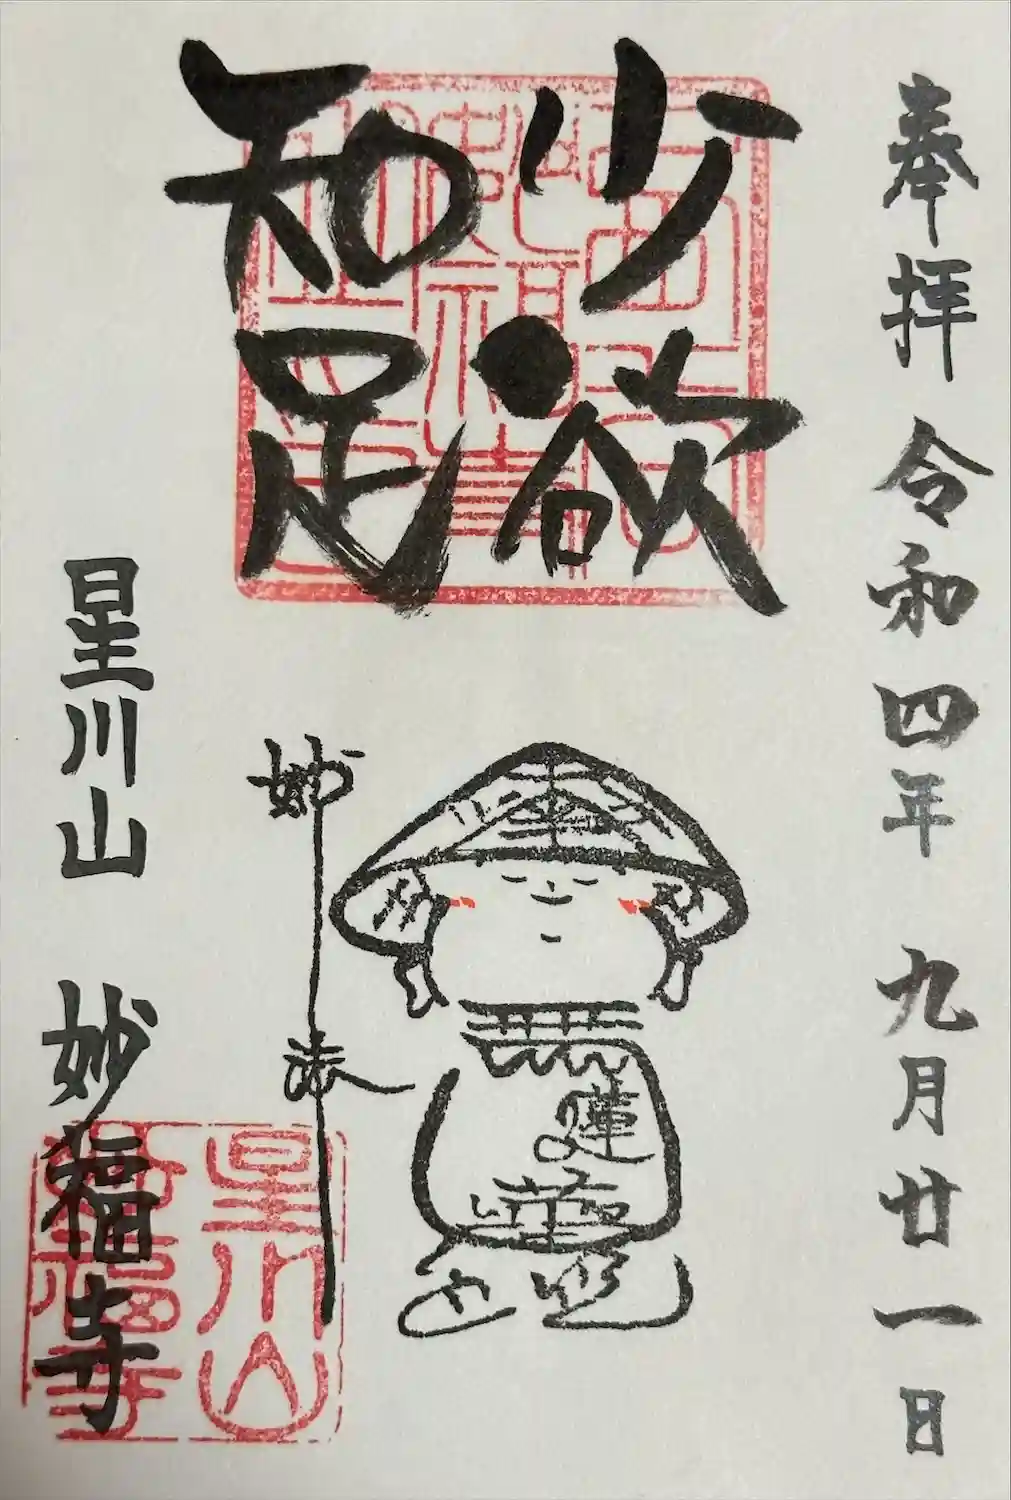 奉拝 令和四年 九月廿一日
少欲
知足
妙法
星川山 妙福寺
星川山
妙福寺